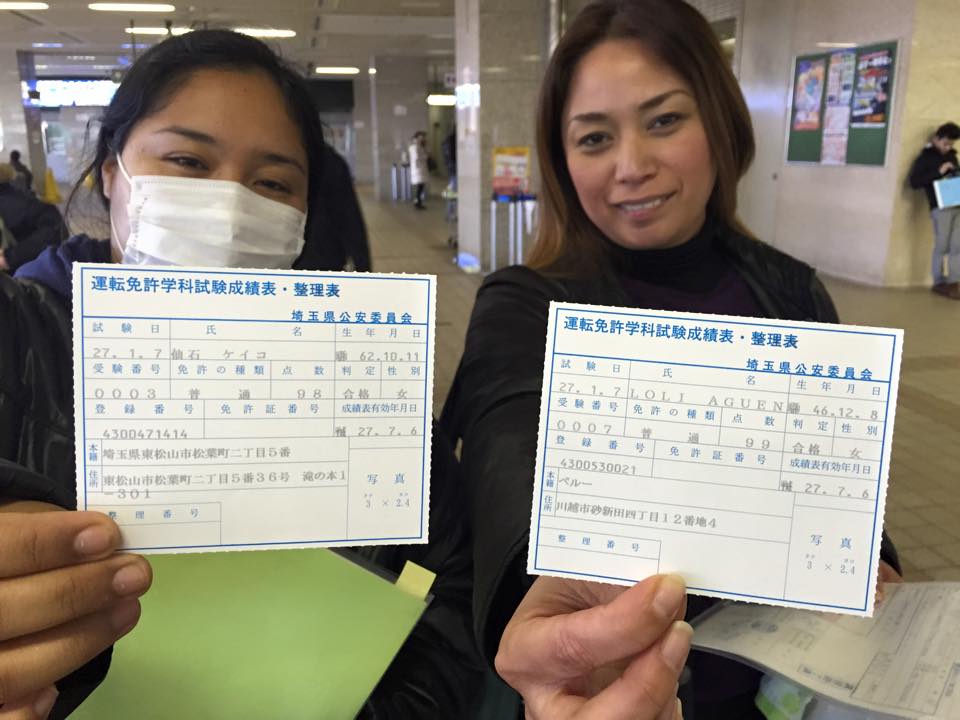 運転免許学科試験成績表・整理表
埼玉県公安委員会
試験日 氏名 生年月日
27. 1. 7 仙石 ケイコ 62.10.11
受験番号 免許の種類 点数 判定 性別
0003 普通 98 合格 女
登録番号 免許証番号 成績表有効年月日
4300471414 27. 7. 6
本籍 埼玉県東松山市松葉町二丁目5番
住所 東松山市松葉町二丁目5番36号 滝の本1
-301
写真
3 × 2.4
整理番号
運転免許学科試験成績表・整理表
埼玉県公安委員会
試験日 氏名 生年月日
27. 1. 7 LOLI AGUEN 46.12. 8
受験番号 免許の種類 点数 判定 性別
0007 普通 99 合格 女
登録番号 免許証番号 成績表有効年月日
4300530021 27. 7. 6
本籍 ペルー
住所 川越市砂新田四丁目12番地4
写真
3 × 2.4
整理番号